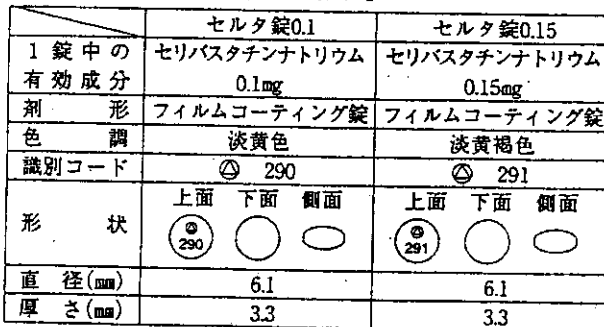 セルタ錠0.1 セルタ錠0.15
1錠中の有効成分 セリバスタチンナトリウム 0.1mg セリバスタチンナトリウム 0.15mg
剤形 フィルムコーティング錠 フィルムコーティング錠
色調 淡黄色 淡黄褐色
識別コード 290 291
上面 下面 側面 上面 下面 側面
形状 290 291
直径(mm) 6.1 6.1
厚さ(mm) 3.3 3.3